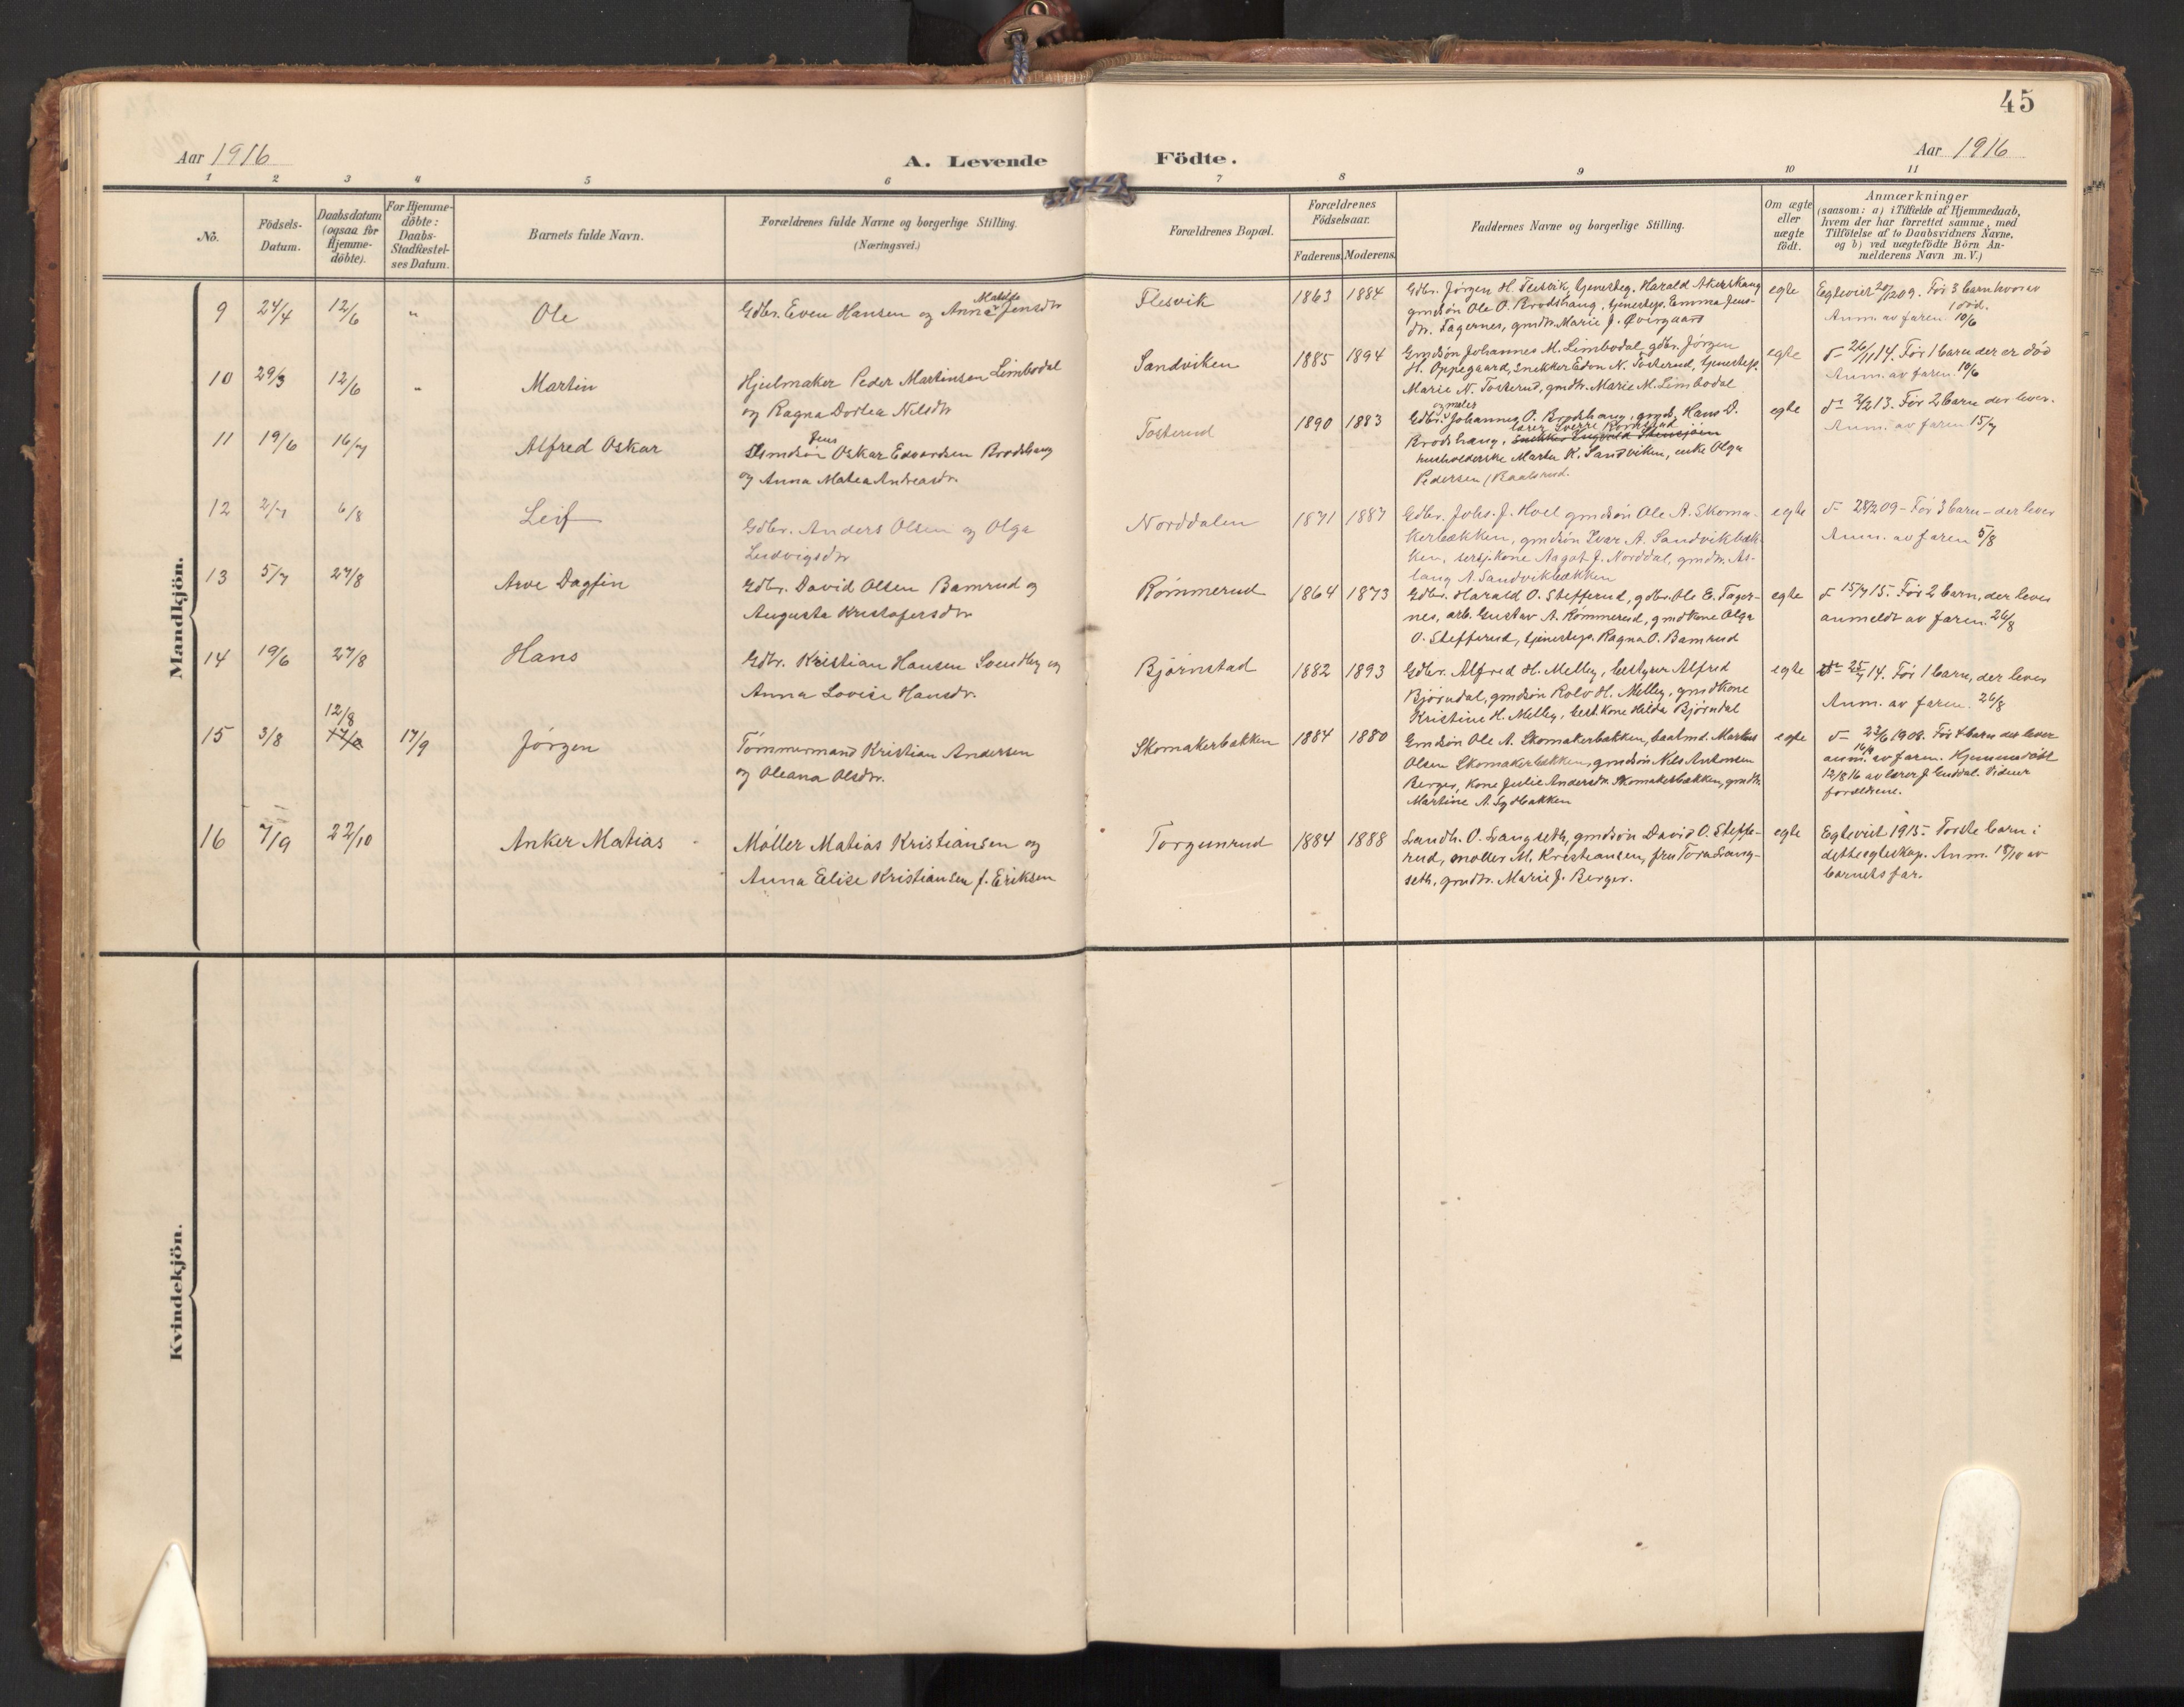 45
Aar 1916
A. Levende Födte.
Aar 1916
1 2 3 4 5 6 7 8 9 10 11
No.
Födsels-
Datum.
Daabsdatum
(ogsaa for
Hjemme-
döbte).
For Hjemme-
döbte:
Daabs-
Stadfæstel-
ses Datum.
Barnets fulde Navn.
Forældrenes fulde Navne og borgerlige Stilling.
(Næringsvei.)
Forældrenes Bopæl.
Forældrenes
Födselsaar.
Faderens. Moderens.
Faddernes Navne og borgerlige Stilling.
Om ægte
eller
uægte
födt.
Anmærkninger
(saasom: a) i Tilfælde af Hjemmedaab,
hvem der har forrettet samme, med
Tilföielse af to Daabsvidners Navne.
og b) ved uægtefödte Börn An-
melderens Navn m. V.)
Mandkjön.
9 24/4 12/6 " Ole
Gdbr. Even Hansen og Anna Matilde Jensdtr
Flesvik 1863 1884
Gdbr. Jörgen H. Flesvik, tjenesteg. Harald Akershaug
gmdsön Ole O. Brodshaug, tjenestep. Emma Jens-
dtr. Fagernes, gmdtr. Marie J. Övergaard
egte
Egteviet 20/12 09. För 3 barn hvorav
1 död.
Anm. av faren 10/6
10 29/3 12/6 " Martin
Hjulmaker Peder Martinsen Limbodal
og Ragna Dortea Nilsdtr
Sandviken 1885 1894
Gmdsön Johannes M. Limbodal, gdbr. Jörgen
H. Oppegaard, Snekker Edon N. Tosterud, tjenestep.
Marie N. Tosterud, gmdtr. Marie M. Limbodal
egte
d- 26/11 14. För 1 barn der er död
Anm. av faren 10/6
11 19/6 16/7 Alfred Oskar
Gmdsön Jens Oskar Edvardsen Brodshaug
og Anna Matea Andreasdtr.
Tosterud 1890 1883
Gdbr. og maler Johannes O. Brodshaug, gmds. Hans D.
Brodshaug, lærer Sverre
husholderske Marta K. Sandviken, enke Olga
Pedersen /Baalsrud
egte
do 2/2 13. För 2 barn der lever.
Anm. av faren 15/7
12 2/7 6/8 Leif
Gdbr. Anders Olsen og Olga
Ludvigsdtr
Norddalen 1871 1887
Gdbr. Johs. J. Hoel gmdsön Ole A. Skoma-
kerbækken, gmdsön Ivar A. Sandvikbæk-
ken, kone Aagot J. Norddal, gmdtr. As-
laug A. Sandvikbækken
egte
d- 28/2 09 - För 3 barn - der lever
Anm. av faren 5/8
13 5/7 27/8 Arve Dagfin
Gdbr. David Olsen Bamrud og
Augusta Kristofersdtr
Römmerud 1864 1873
Gdbr. Harald O. Stefferud, gdbr. Ole E. Fager-
nes, arb. Gustav A. Römmerud, gmdkone Olga
O. Stefferud, tjenestep. Ragna O. Bamrud
egte
d- 15/7 15. För 2 barn, der lever
anmeldt av faren. 26/8
14 19/6 27/8 Hans
Gdbr. Kristian Hansen og
Anna Lovise Hansdtr.
Björnstad 1882 1893
Gdbr. Alfred H. Melby, bestyrer Alfred
Björndal, gmdsön Rolv H. Melby, gmdkone
Kristine H. Melby, best. kone Hilda Björndal
egte
14. För 1 barn, der lever
Anm. av faren. 26/8
15 3/8 12/8 17/9 Jörgen
Tömmermand Kristian Andersen
og Oleana Olsdtr.
Skomakerbakken 1884 1880
Gmdsön Ole A. Skomakerbakken, Markus
Olsen Skomakerbækken, gmdsön Nils Antonsen
Berger, kone Julie Andersdtr. Skomakerbækken, gmdtr.
Martine A. Sydbakken
egte
d- 22/6 1908. För 4 barn der lever
anm. 16/9 av faren. Hjemmedöbt
12/8 16 av lærer J. Vidner
forældrene.
16 7/9 22/10 Anker Matias
Möller Matias Kristiansen og
Anna Elise Kristiansen f. Eriksen
Torgunrud 1884 1888
Landh. O. Langseth, gmdsön David O. Steffe-
rud, möller M. Kristiansen, fru Tora Lang-
seth, gmdtr. Marie J. Berger.
egte
Egteviet 1915. Förste barn i
dette egteskap. Anm. 15/10 av
barnets far.
Kvindekjön.